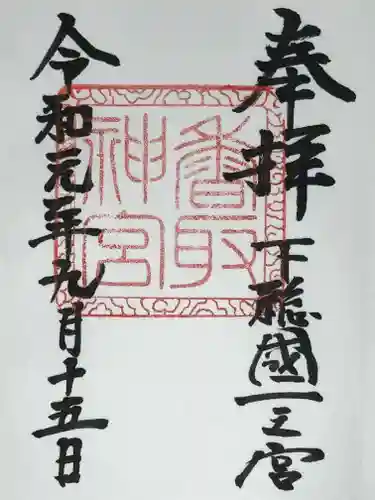 奉拝
下総國一之宮
香取神宮
令和元年九月十五日